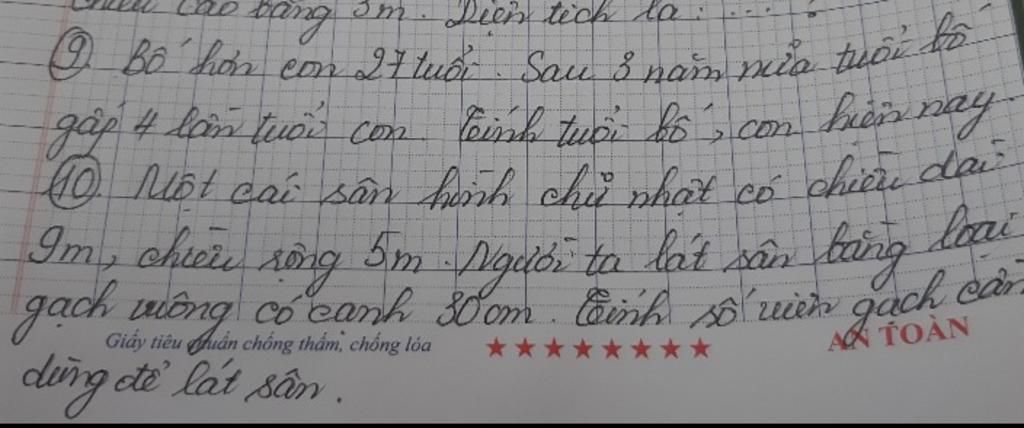 chiều cao bằng 3m. Diện tích là: ....?
⑨ Bố hơn con 27 tuổi. Sau 3 năm nữa tuổi bố
gấp 4 lần tuổi con. Tính tuổi bố, con hiện nay.
⑩. Một cái sân hình chữ nhật có chiều dài
9m, chiều rộng 5m. Người ta lát sân bằng loại
gạch vuông có cạnh 30cm. Tính số viên gạch cần
Giấy tiêu chuẩn chống thấm, chống lóa ★★★★★★★★ AN TOÀN
dùng để lát sân.